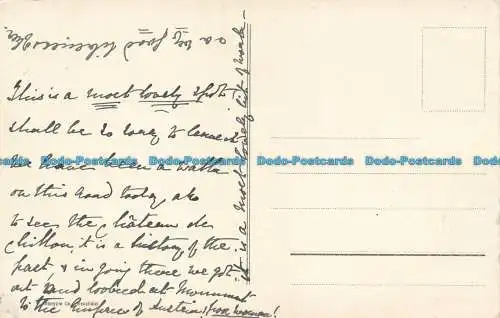 This is a most lovely spot!
shall be so sorry to leave it
We have been a walk
on this road today, also
to see the Château de
Chillon, it is a history of the
past, & in going there we got
out and looked at Monument
to the Empress of Austria, poor woman!
it is a most lovely bit of work
Dodo-Postcards Dodo-Postcards Dodo-Postcards Dodo-Postcards Dodo-Postcards